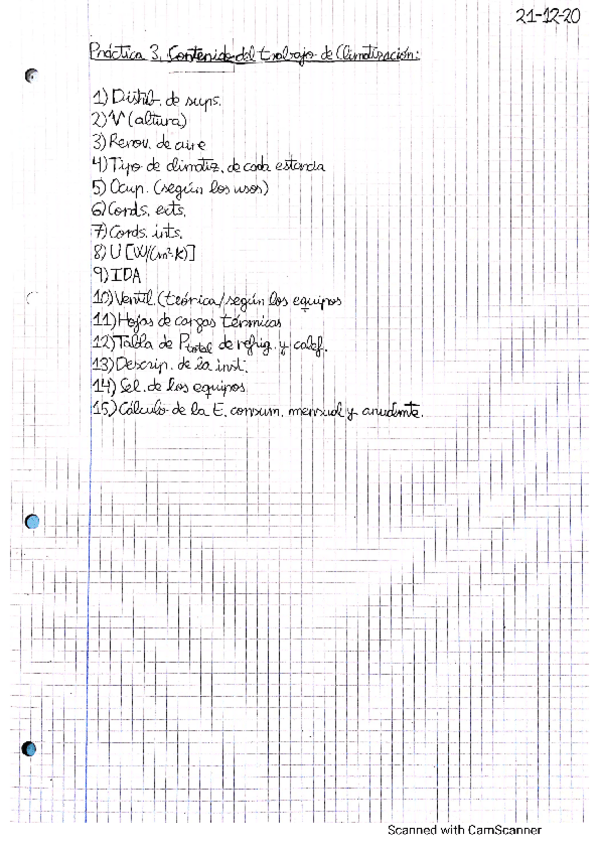 21-12-20
Práctica 3. Contenido del trabajo de Climatización:
1) Distrib. de sups.
2) V (altura)
3) Renov. de aire
4) Tipo de climatiz. de cada estancia
5) Ocup. (según los usos)
6) Conds. exts.
7) Conds. ints.
8) U [W/(m²·K)]
9) IDA
10) Ventil. (teórica/según los equipos
11) Hojas de cargas térmicas
12) Tabla de Ptotal de refrig. y calef.
13) Descrip. de la inst.
14) Sel. de los equipos
15) Cálculo de la E. consum. mensual y anualmte.
Scanned with CamScanner